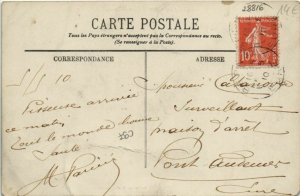 28816
CARTE POSTALE
Tous les Pays étrangers n'acceptent pas la Correspondance au recto.
(Se renseigner à la Poste).
CORRESPONDANCE
ADRESSE
10
5/5 10
arrivée
ce matin,
tout le monde bonne
santé
Monsieur
Surveillant
maison d'arrêt
Pont Audemer
Eure